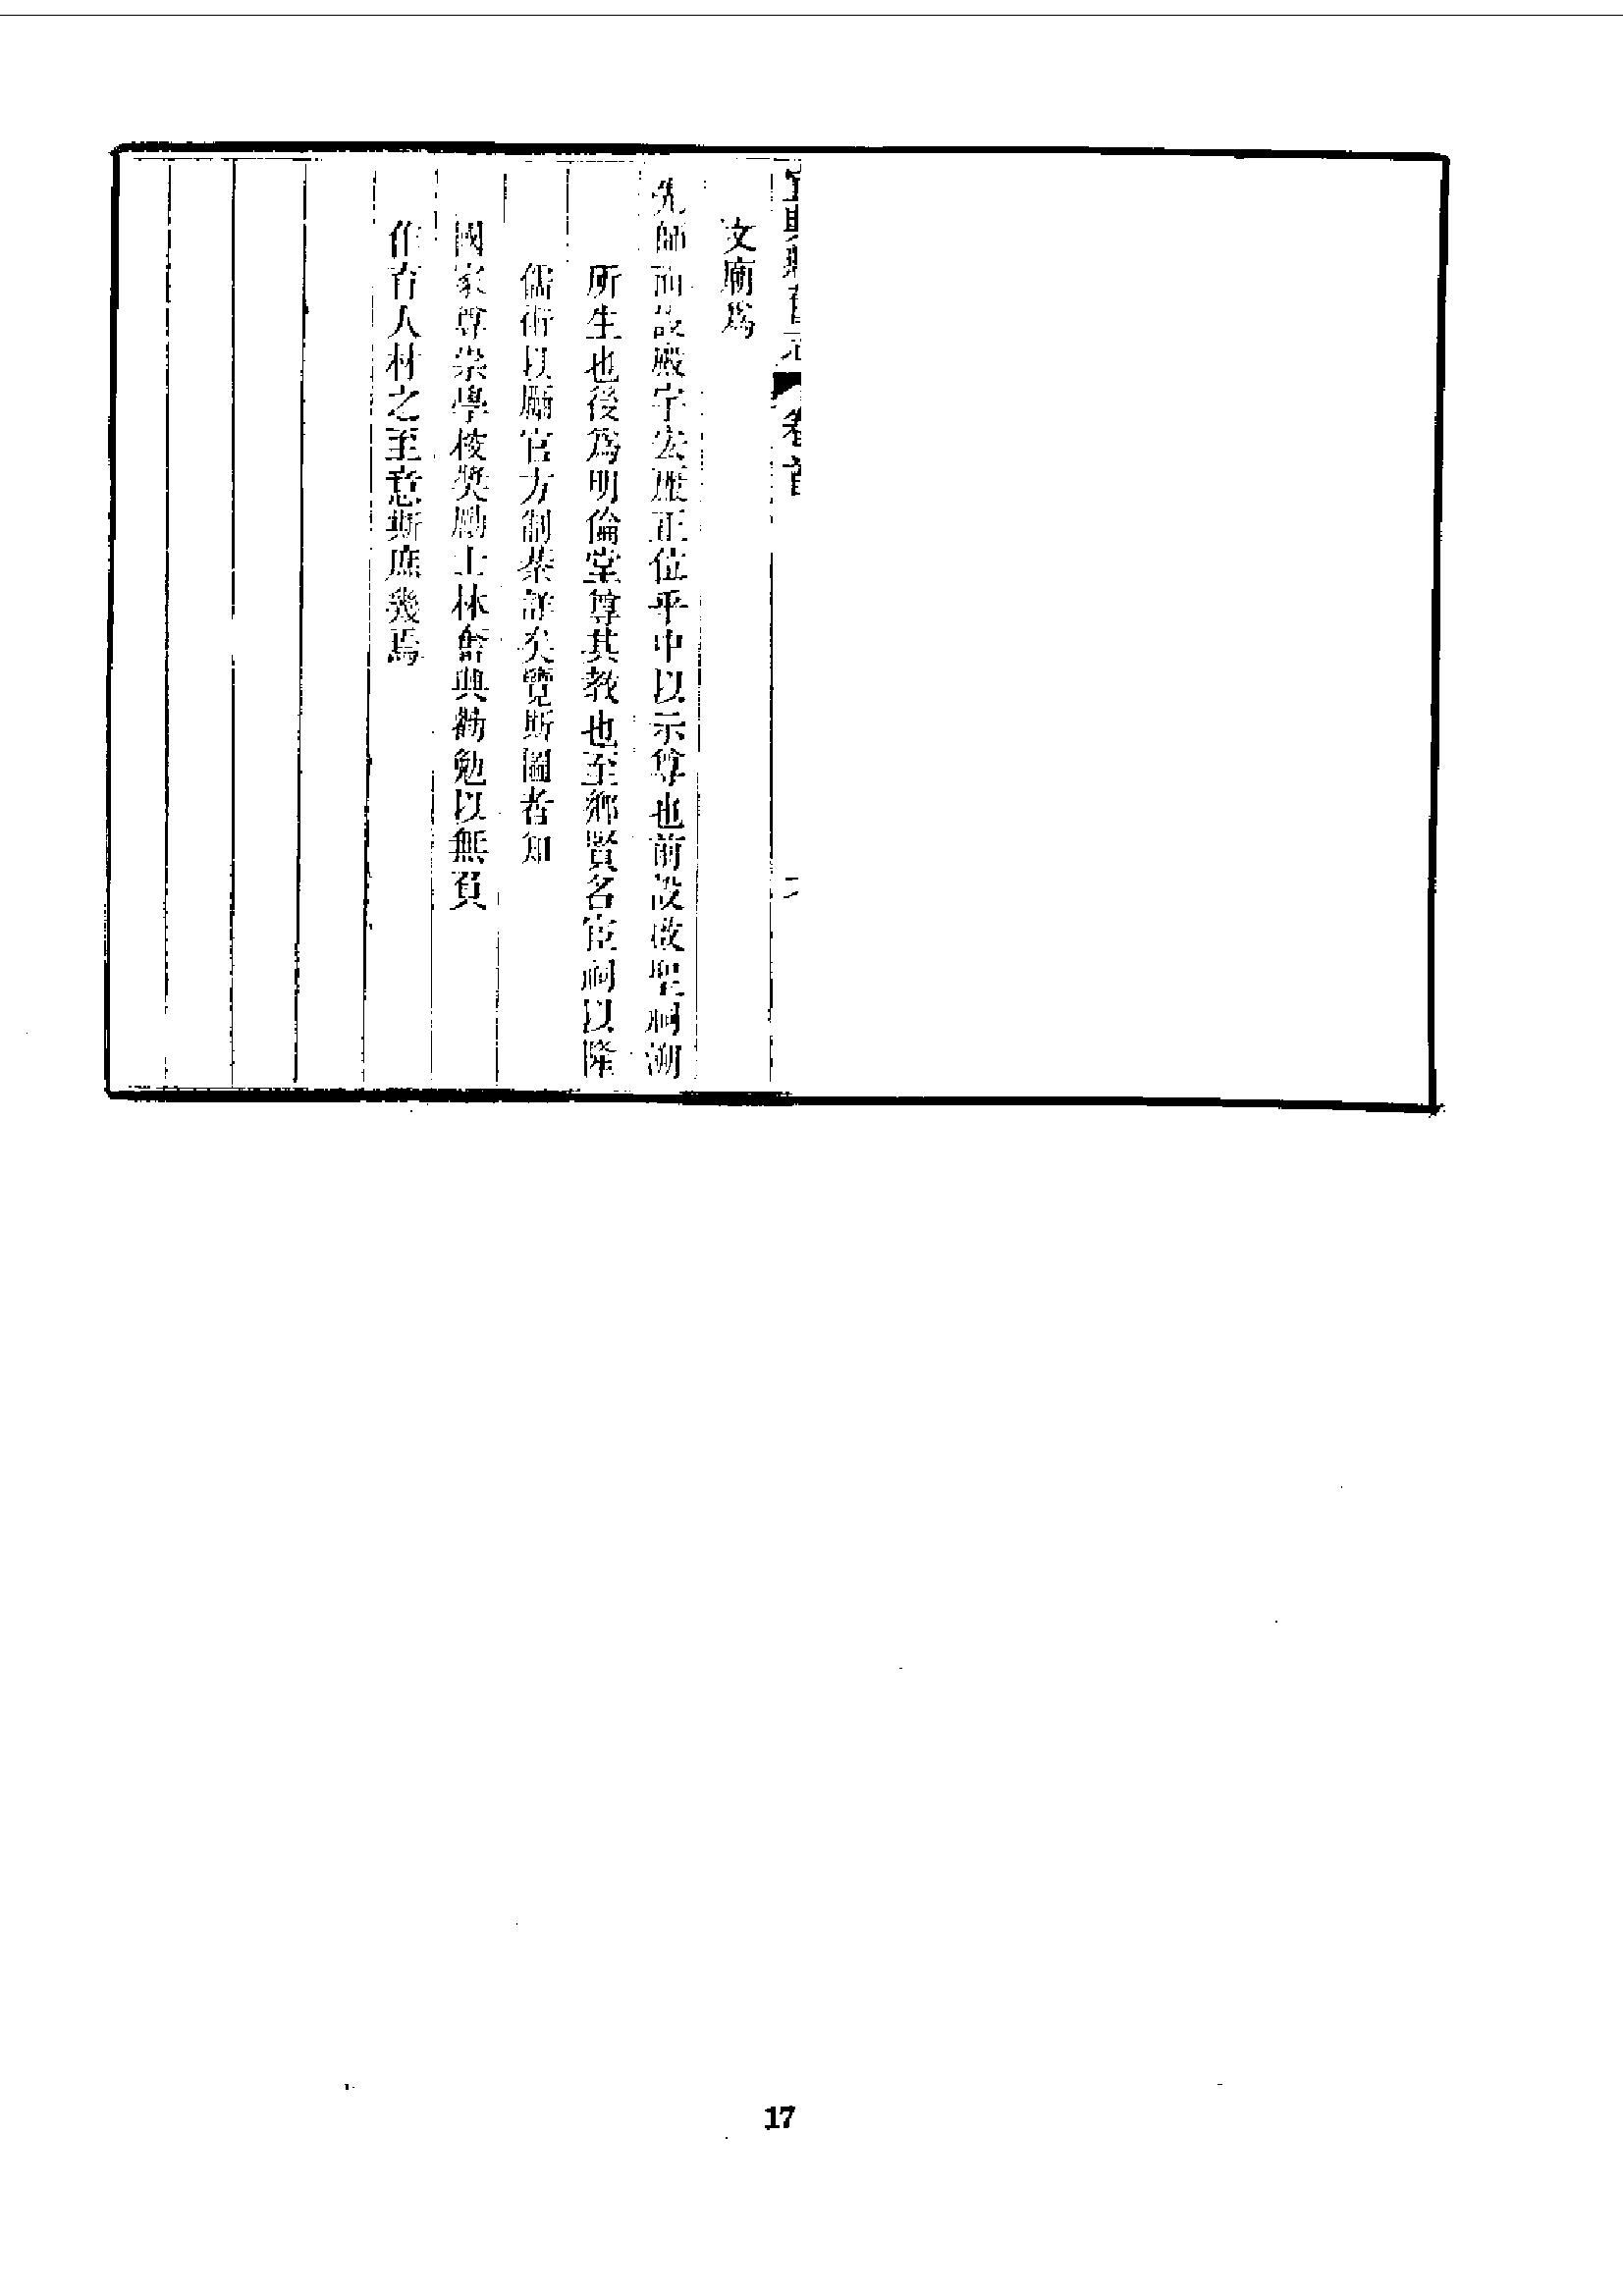 宜興縣舊志 卷首
文廟爲
先師而設殿宇宏麗正位乎中以示尊也前設啟聖祠溯
所生也後爲明倫堂尊其教也至鄉賢名宦祠以隆
儒術以勵官方制綦詳矣覽斯圖者知
國家尊崇學校獎勵士林奮興勸勉以無負
作育人材之至意斯庶幾焉
17